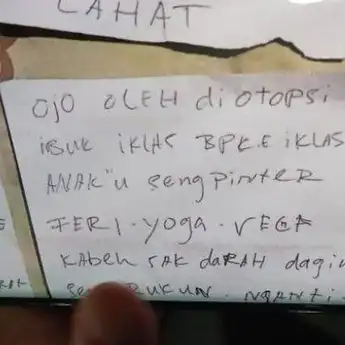 LAHAT
OJO OLEH diotopsi
iBUK iKLAS BPK.E iKLAS
ANAK"u seng PiNtER
FERI. yoga. VEGA
KABeh SAK daRAH dagi
RUKUN. NGANTi